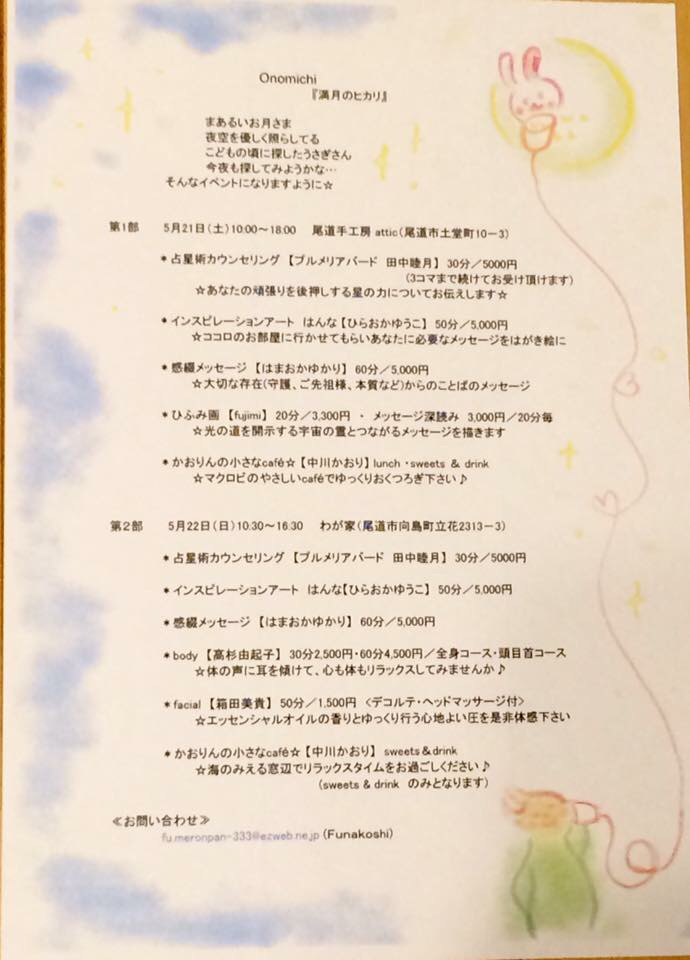 Onomichi
『満月のヒカリ』
まあるいお月さま
夜空を優しく照らしてる
こどもの頃に探したうさぎさん
今夜も探してみようかな…
そんなイベントになりますように☆
第1部 5月21日(土)10:00~18:00 尾道手工房 attic(尾道市土堂町10-3)
*占星術カウンセリング 【プルメリアバード 田中睦月】 30分/5000円
(3コマまで続けてお受け頂けます)
☆あなたの頑張りを後押しする星の力についてお伝えします☆
*インスピレーションアート はんな【ひらおかゆうこ】 50分/5,000円
☆ココロのお部屋に行かせてもらいあなたに必要なメッセージをはがき絵に
*感綴メッセージ 【はまおかゆかり】 60分/5,000円
☆大切な存在(守護、ご先祖様、本質など)からのことばのメッセージ
*ひふみ画 【fujimi】 20分/3,300円 ・ メッセージ深読み 3,000円/20分毎
☆光の道を開示する宇宙の霊とつながるメッセージを描きます
*かおりんの小さなcafé☆ 【中川かおり】 lunch ・sweets & drink
☆マクロビのやさしいcaféでゆっくりおくつろぎ下さい♪
第2部 5月22日(日)10:30~16:30 わが家(尾道市向島町立花2313-3)
*占星術カウンセリング 【プルメリアバード 田中睦月】 30分/5000円
*インスピレーションアート はんな【ひらおかゆうこ】 50分/5,000円
*感綴メッセージ 【はまおかゆかり】 60分/5,000円
*body 【高杉由起子】 30分2,500円・60分4,500円/全身コース・頭目首コース
☆体の声に耳を傾けて、心も体もリラックスしてみませんか♪
*facial 【箱田美貴】 50分/1,500円 <デコルテ・ヘッドマッサージ付>
☆エッセンシャルオイルの香りとゆっくり行う心地よい圧を是非体感下さい
*かおりんの小さなcafé☆ 【中川かおり】 sweets&drink
☆海のみえる窓辺でリラックスタイムをお過ごしください♪
(sweets & drink のみとなります)
≪お問い合わせ≫
fu.meronpan-333@ezweb.ne.jp (Funakoshi)